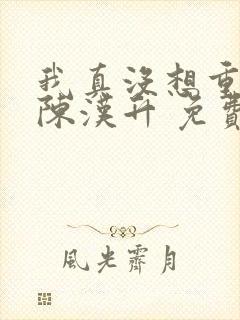 我真没想重
陈漢升 免費
風光霽月